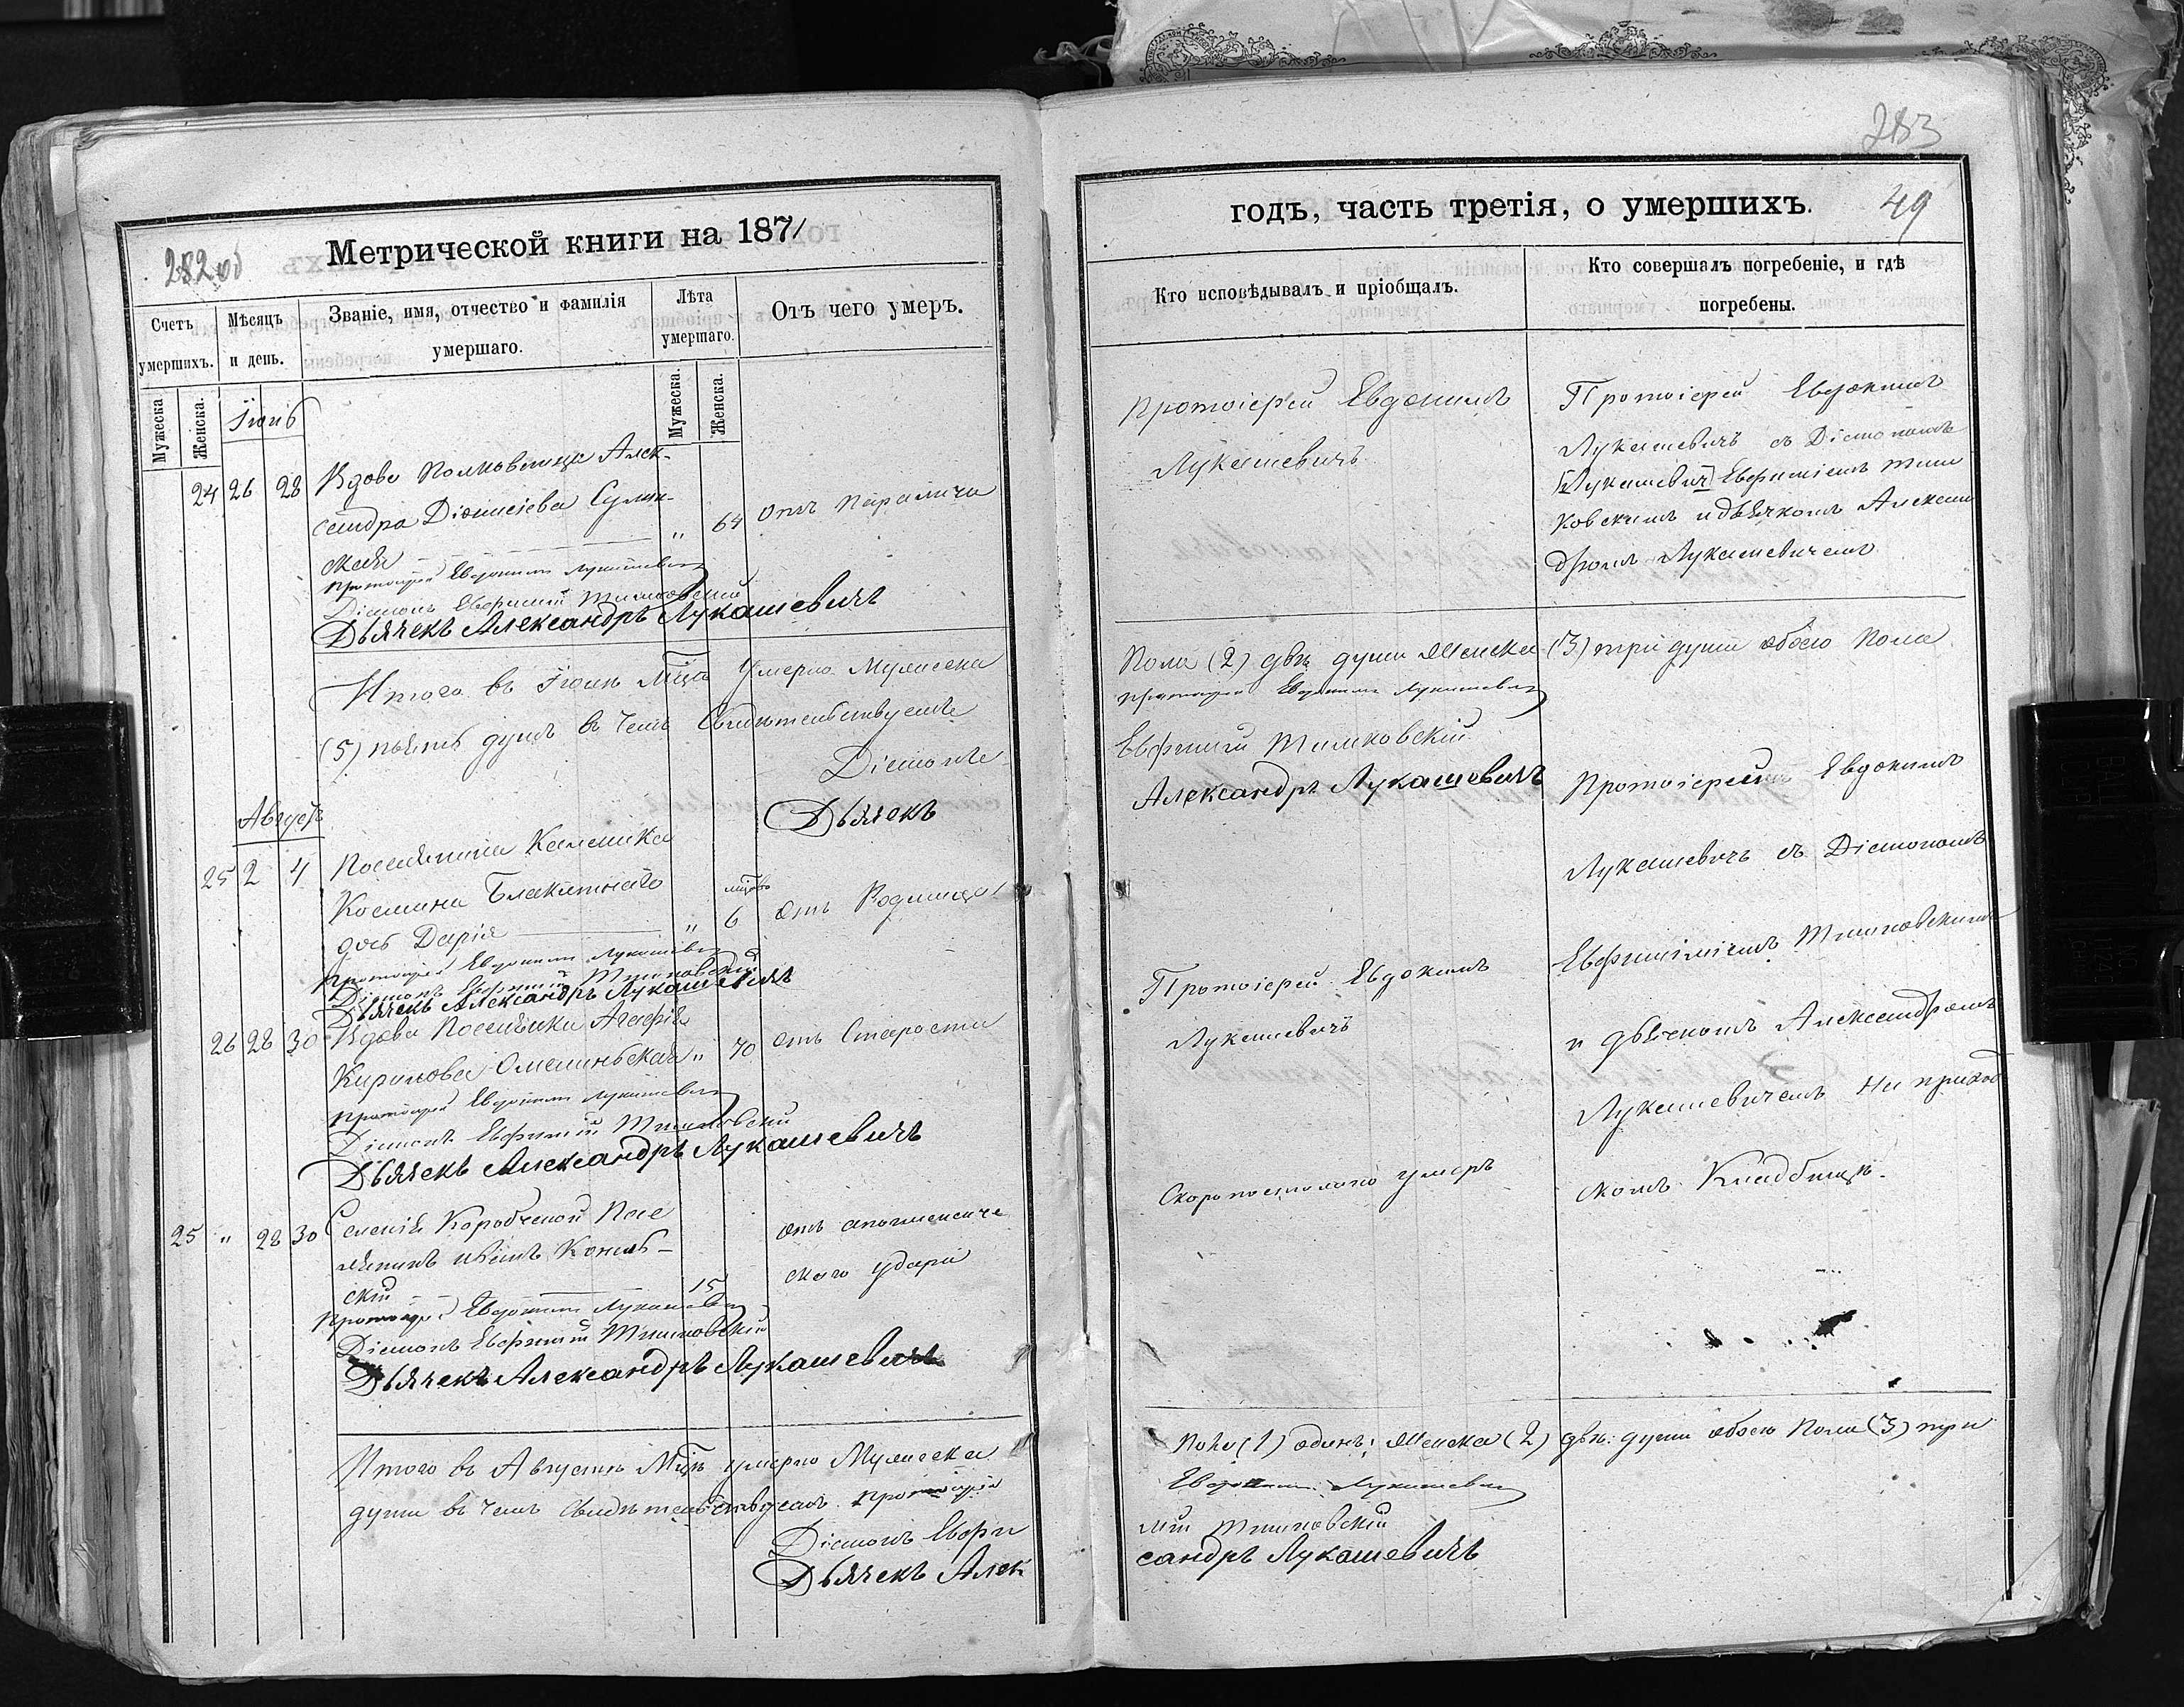 282 об
Метрической книги на 1871
Счетъ умершихъ.
Мѣсяцъ и день.
Званіе, имя, отчество и фамилія умершаго.
Лѣта умершаго.
Отъ чего умеръ.
Мужеска
Женска.
Мужеска.
Женска.
Іюнь
24 26 28 Вдова Полковница Алек-
сандра Діонисіева
ская „ 64 отъ Паралича
Протоіерей Евдокимъ Лукашевичъ
Діаконъ Евфимій
Дьячекъ Александръ Лукашевичъ
Итого въ Іюнѣ Мцѣ умерло Мужеска
(5) пять душъ въ чемъ свидѣтельствуемъ
Діаконъ
Дьячекъ
Августъ
25 2 4 Поселянина
Косьмы Блакитнаго
дочь Дарія „ 6 отъ Родимца
Протоіерей Евдокимъ Лукашевичъ
Діаконъ Евфимій
Дьячекъ Александръ Лукашевичъ
26 28 30 Вдова Поселянка Агафія
Кирилова „ 70 отъ Старости
Протоіерей Евдокимъ Лукашевичъ
Діаконъ Евфимій
Дьячекъ Александръ Лукашевичъ
25 „ 28 30 Коробчиной Посе
лянинъ
скій 15 отъ апоплексиче
скаго удара
Протоіерей Евдокимъ Лукашевичъ
Діаконъ Евфимій
Дьячекъ Александръ Лукашевичъ
Итого въ Августѣ Мцѣ умерло Мужеска
души въ чемъ свидѣтельствуемъ Протоіерей
Діаконъ Евфи
Дьячекъ Алек
283
годъ, часть третія, о умершихъ.
49
Кто исповѣдывалъ и пріобщалъ.
Кто совершалъ погребеніе, и гдѣ погребены.
Протоіерей Евдокимъ
Лукашевичъ
Протоіерей Евдокимъ
Лукашевичъ съ Діакономъ
Лукашевич Евфиміемъ
ковскимъ и дьячкомъ Алексан
дромъ Лукашевичемъ
Пола (2) двѣ души Женска (3) три души обоего Пола
Протоіерей Евдокимъ Лукашевичъ
Евфимій
Александръ Лукашевичъ
Протоіерей Евдокимъ
Лукашевичъ съ Діакономъ
Протоіерей Евдокимъ
Лукашевичъ
и дьячкомъ Александромъ
Лукашевичемъ На приход
скомъ Кладбищѣ.
Скоропостижно умеръ
Пола (1) одинъ; Женска (2) двѣ: души обоего Пола (3) три
Евдокимъ Лукашевичъ
мій
сандръ Лукашевичъ